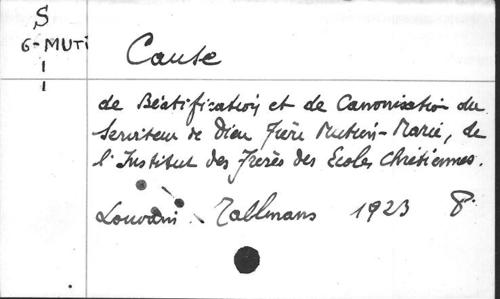 S
G-MUTi
Cause
de Béatification et de Canonisation du
Serviteur de Dieu Frère Mutien-Marie, de
l'Institut des Frères des Ecoles Chrétiennes.
Louvain. Tallmans 1923 8°.